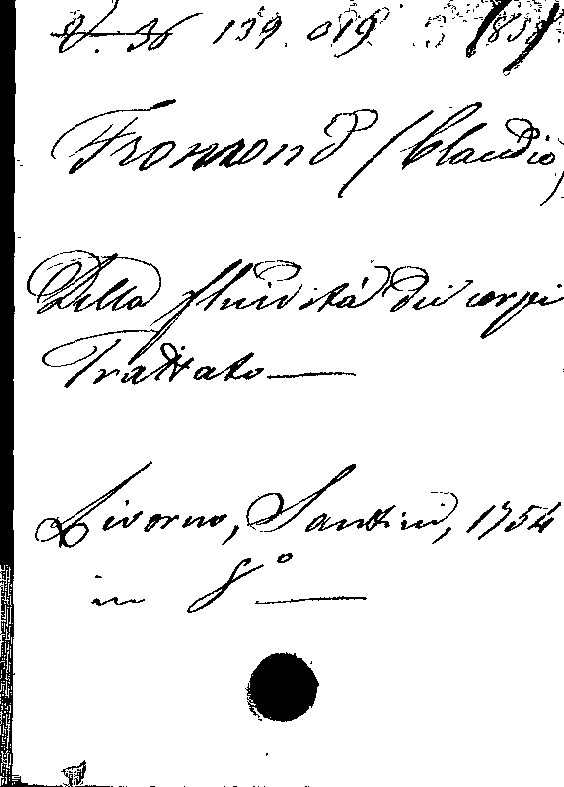 V. 36 139. 019.
Fromond (Claudio)
Della fluidità dei corpi
Trattato —
Livorno, Santini, 1754
in 8° —